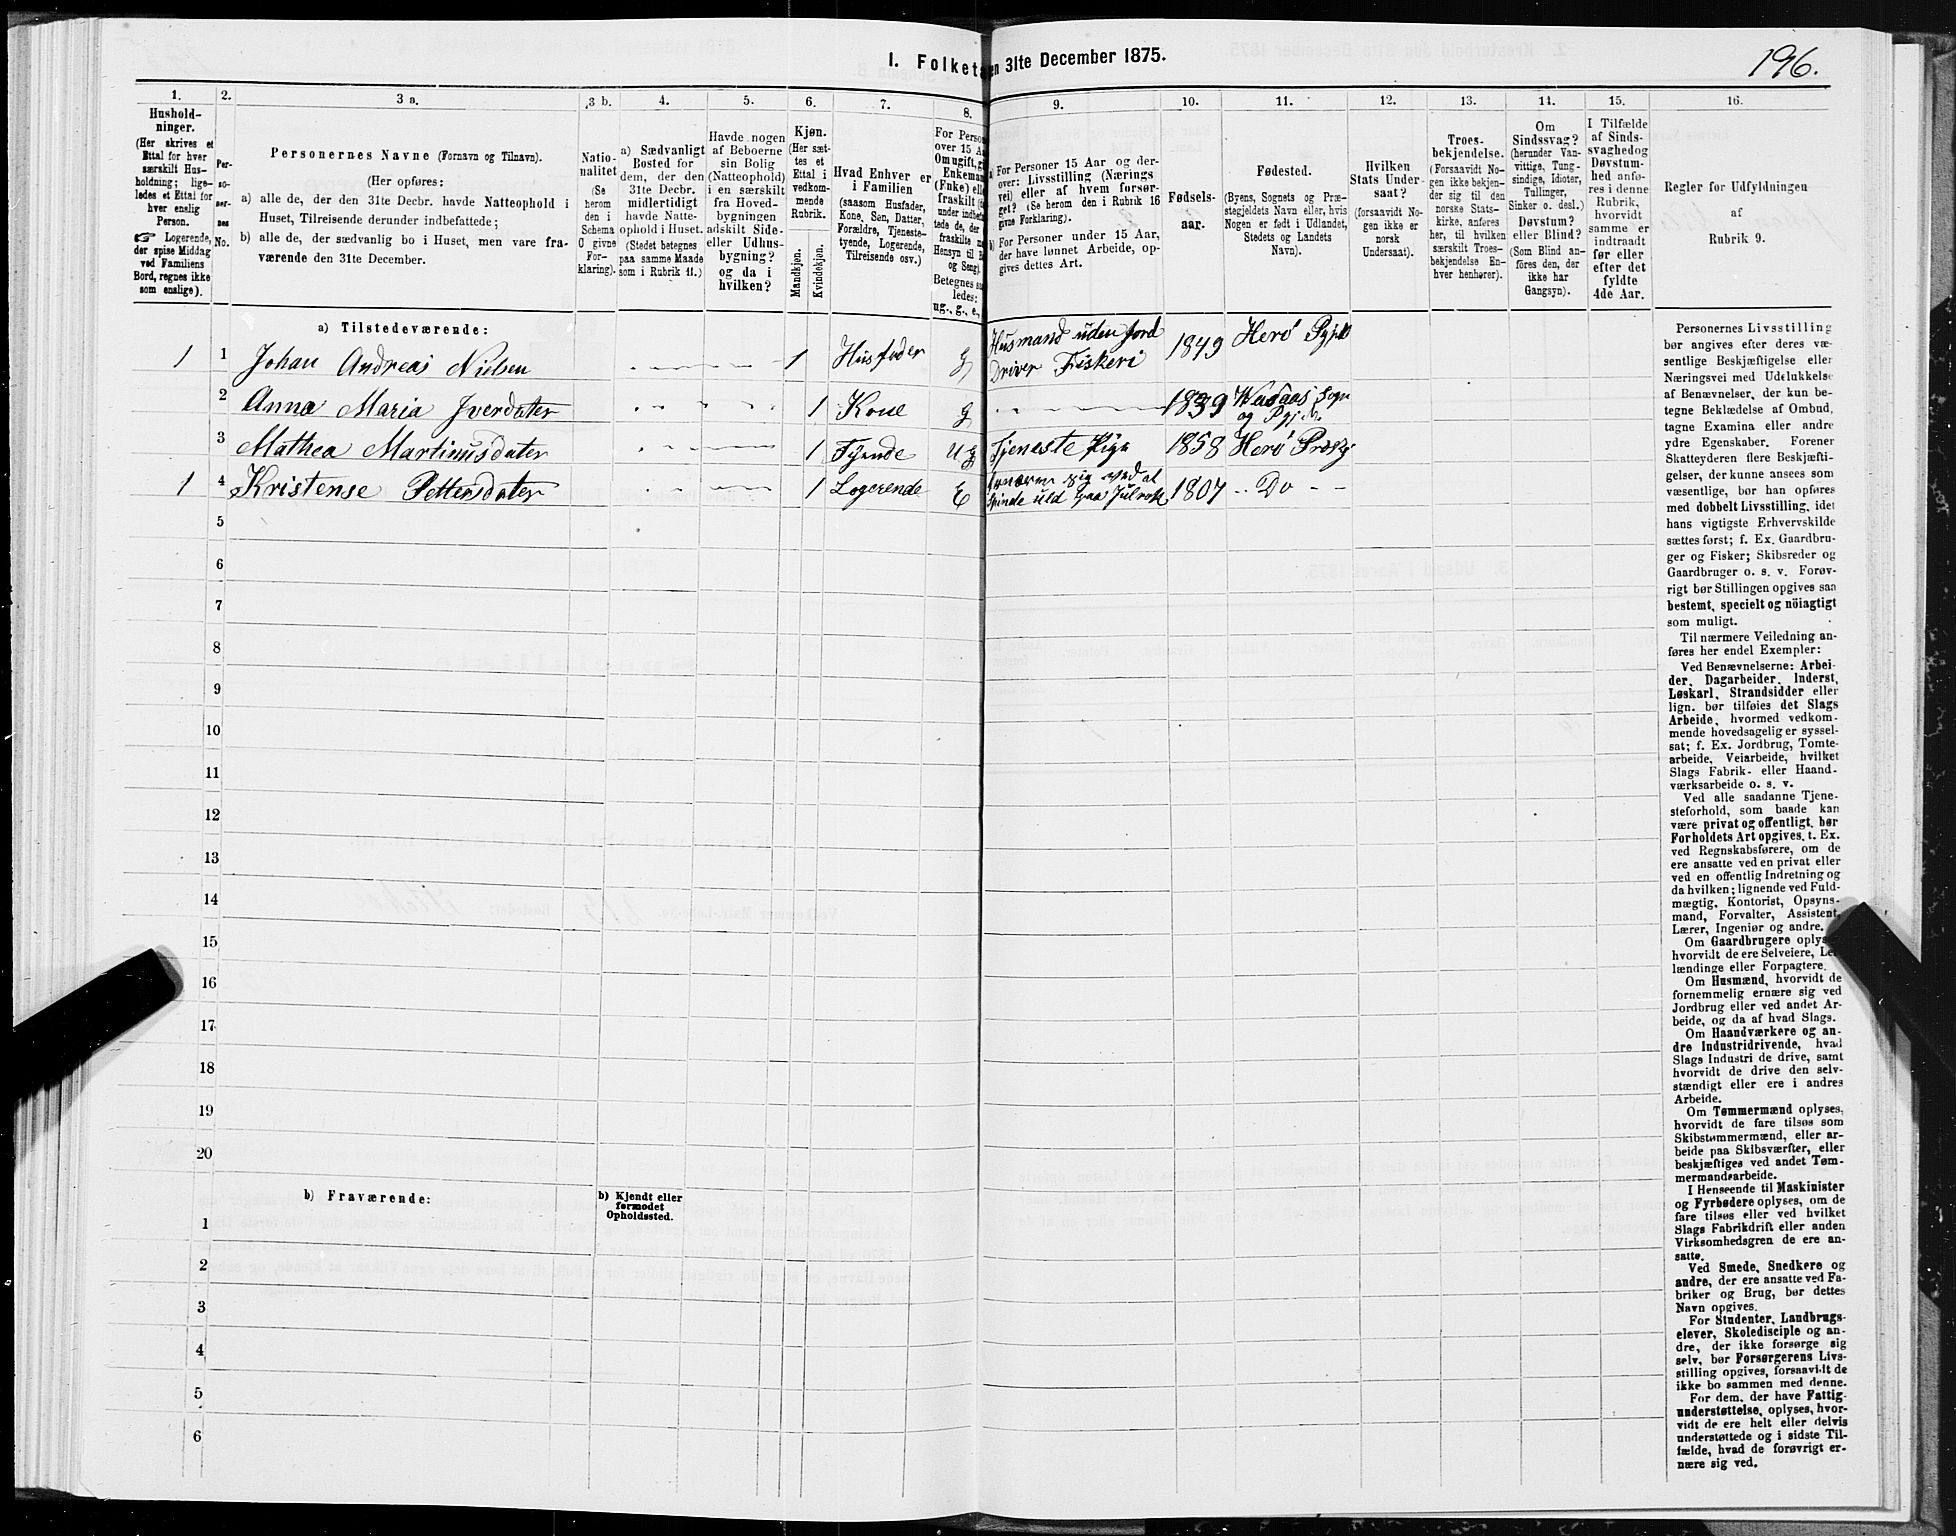 196.
I. Folketæ
en 31te December 1875.
1. 2. 3 a. 3 b. 4. 5. 6. 7. 8. 9. 10. 11. 12. 13. 14. 15. 16.
Hushold-
ninger.
(Her skrives et
Ettal for hver
særskilt Hus-
holdning; lige-
ledes et Ettal for
hver enslig
Person.
☞ Logerende,
der spise Middag
ved Familiens
Bord, regnes ikke
som enslige).
Per-
so-
ner-
nes
No.
Personernes Navne (Fornavn og Tilnavn).
(Her opføres:
a) alle de, der den 31te Decbr. havde Natteophold i
Huset, Tilreisende derunder indbefattede;
b) alle de, der sædvanlig bo i Huset, men vare fra-
værende den 31te December.
Natio-
nalitet
(Se
herom
den i
Schema
O givne
For-
klaring).
a) Sædvanligt
Bosted for
dem, der den
31te Decbr.
midlertidigt
havde Natte-
ophold i Huset.
(Stedet betegnes
paa samme Maade
som i Rubrik 11.)
Havde nogen
af Beboerne
sin Bolig
(Natteophold)
i en særskilt
fra Hoved-
bygningen
adskilt Side-
eller Udhus-
bygning?
og da i
hvilken?
Kjøn.
(Her sæt-
tes et
Ettal i
vedkom-
mende
Rubrik.
Mandkjøn.
Kvindekjøn.
Hvad Enhver er
i Familien
(saasom Husfader,
Kone, Søn, Datter,
Forældre, Tjeneste-
tyende, Logerende,
Tilreisende osv.)
For Perso
over 15 A
Om ugift, g
Enkeman
(Enke) ell
fraskilt (d
under indbef
tede de, der
fraskilte m
Hensyn til B
og Seng).
Betegnes sa
ledes:
ug., g., e.,
a) For Personer 15 Aar og der-
over: Livsstilling (Nærings
vei) eller af hvem forsør-
get? (Se herom den i Rubrik 16
givne Forklaring).
b) For Personer under 15 Aar,
der have lønnet Arbeide, op-
gives dettes Art.
Fødsels-
aar.
Fødested.
(Byens, Sognets og Præ-
stegjeldets Navn eller, hvis
Nogen er født i Udlandet,
Stedets og Landets
Navn).
Hvilken
Stats Under-
saat?
(forsaavidt No-
gen ikke er
norsk
Undersaat).
Troes-
bekjendelse.
(Forsaavidt No-
gen ikke bekjen-
der sig til den
norske Stats-
kirke, anføres
her, til hvilken
særskilt Troes-
bekjendelse En-
hver henhører).
Om
Sindssvag?
(herunder Van-
vittige, Tung-
sindige, Idioter,
Tullinger,
Sinker o. desl.)
Døvstum?
eller Blind?
(Som Blind an-
føres den, der
ikke har
Gangsyn).
I Tilfælde
af Sinds-
svaghed og
Døvstum-
hed anfø-
res i denne
Rubrik,
hvorvidt
samme er
indtraadt
før eller
efter det
fyldte
4de Aar.
Regler for Udfyldningen
af
Rubrik 9.
a) Tilstedeværende:
1 1 Johan Andreas Nielsen 1 Husfader g Husmand uden Jord Driver Fiskeri 1849 Herø Pgjld
2 Anna Maria Iverdater 1 Kone g 1839 Sogn og Pgjld.
3 Mathea Martinusdater 1 Tyende ug Tjeneste Pige 1858 Herø Præstg
1 4 Kristense Pettersdater 1 Logerende E sig ved at spinde uld paa 1807 Do
5
6
7
8
9
10
11
12
13
14
15
16
17
18
19
20
b) Fraværende:
b) Kjendt eller
formodet
Opholdssted.
1
2
3
4
5
6
Personernes Livsstilling
bør angives efter deres væ-
sentlige Beskjæftigelse eller
Næringsvei med Udelukkelse
af Benævnelser, der kun be-
tegne Beklædelse af Ombud,
tagne Examina eller andre
ydre Egenskaber. Forener
Skatteyderen flere Beskjæfti-
gelser, der kunne ansees som
væsentlige, bør han opføres
med dobbelt Livsstilling, idet
hans vigtigste Erhvervskilde
sættes først; f. Ex. Gaardbru-
ger og Fisker; Skibsreder og
Gaardbruger o. s. v. Forøv-
rigt bør Stillingen opgives saa
bestemt, specielt og nöiagtigt
som muligt.
Til nærmere Veiledning an-
føres her endel Exempler:
Ved Benævnelserne: Arbei-
der, Dagarbeider, Inderst,
Løskarl, Strandsidder eller
lign. bør tilføies det Slags
Arbeide, hvormed vedkom-
mende hovedsagelig er syssel-
sat; f. Ex. Jordbrug, Tomte-
arbeide, Veiarbeide, hvilket
Slags Fabrik- eller Haand-
værksarbeide o. s. v.
Ved alle saadanne Tjene-
steforhold, som baade kan
være privat og offentligt, bør
Forholdets Art opgives, t. Ex.
ved Regnskabsførere, om de
ere ansatte ved en privat eller
ved en offentlig Indretning og
da hvilken; lignende ved Fuld-
mægtig, Kontorist, Opsyns-
mand, Forvalter, Assistent,
Lærer, Ingeniør og andre.
Om Gaardbrugere oplys
hvorvidt de ere Selveiere, Lei
lændinge eller Forpagtere.
Om Husmænd, hvorvidt de
fornemmelig ernære sig ved
Jordbrug eller ved andet Ar-
beide, og da af hvad Slags.
Om Haandværkere og an-
dre Industridrivende, hvad
Slags Industri de drive, samt
hvorvidt de drive den selv-
stændigt eller ere i andres
Arbeide.
Om Tømmermænd oplyses,
hvorvidt de fare tilsøs som
Skibstømmermænd, eller ar-
beide paa Skibsværfter, eller
beskjæftiges ved andet Tøm-
mermandsarbeide.
I Henseende til Maskinister
og Fyrbødere oplyses, om de
fare tilsøs eller ved hvilket
Slags Fabrikdrift eller anden
Virksomhedsgren de ere an-
satte.
Ved Smede, Snedkere og
andre, der ere ansatte ved Fa-
briker og Brug, bør dettes
Navn opgives.
For Studenter, Landbrugs-
elever, Skoledisciple og an-
dre, der ikke forsørge sig
selv, bør Forsørgerens Livs-
stilling opgives, forsaavidt de
ikke bo sammen med denne.
For dem, der have Fattig-
understøttelse, oplyses, hvor-
vidt de ere helt eller delvis
understøttede og i sidste Til-
fælde, hvad de forøvrigt er-
nære sig ved.